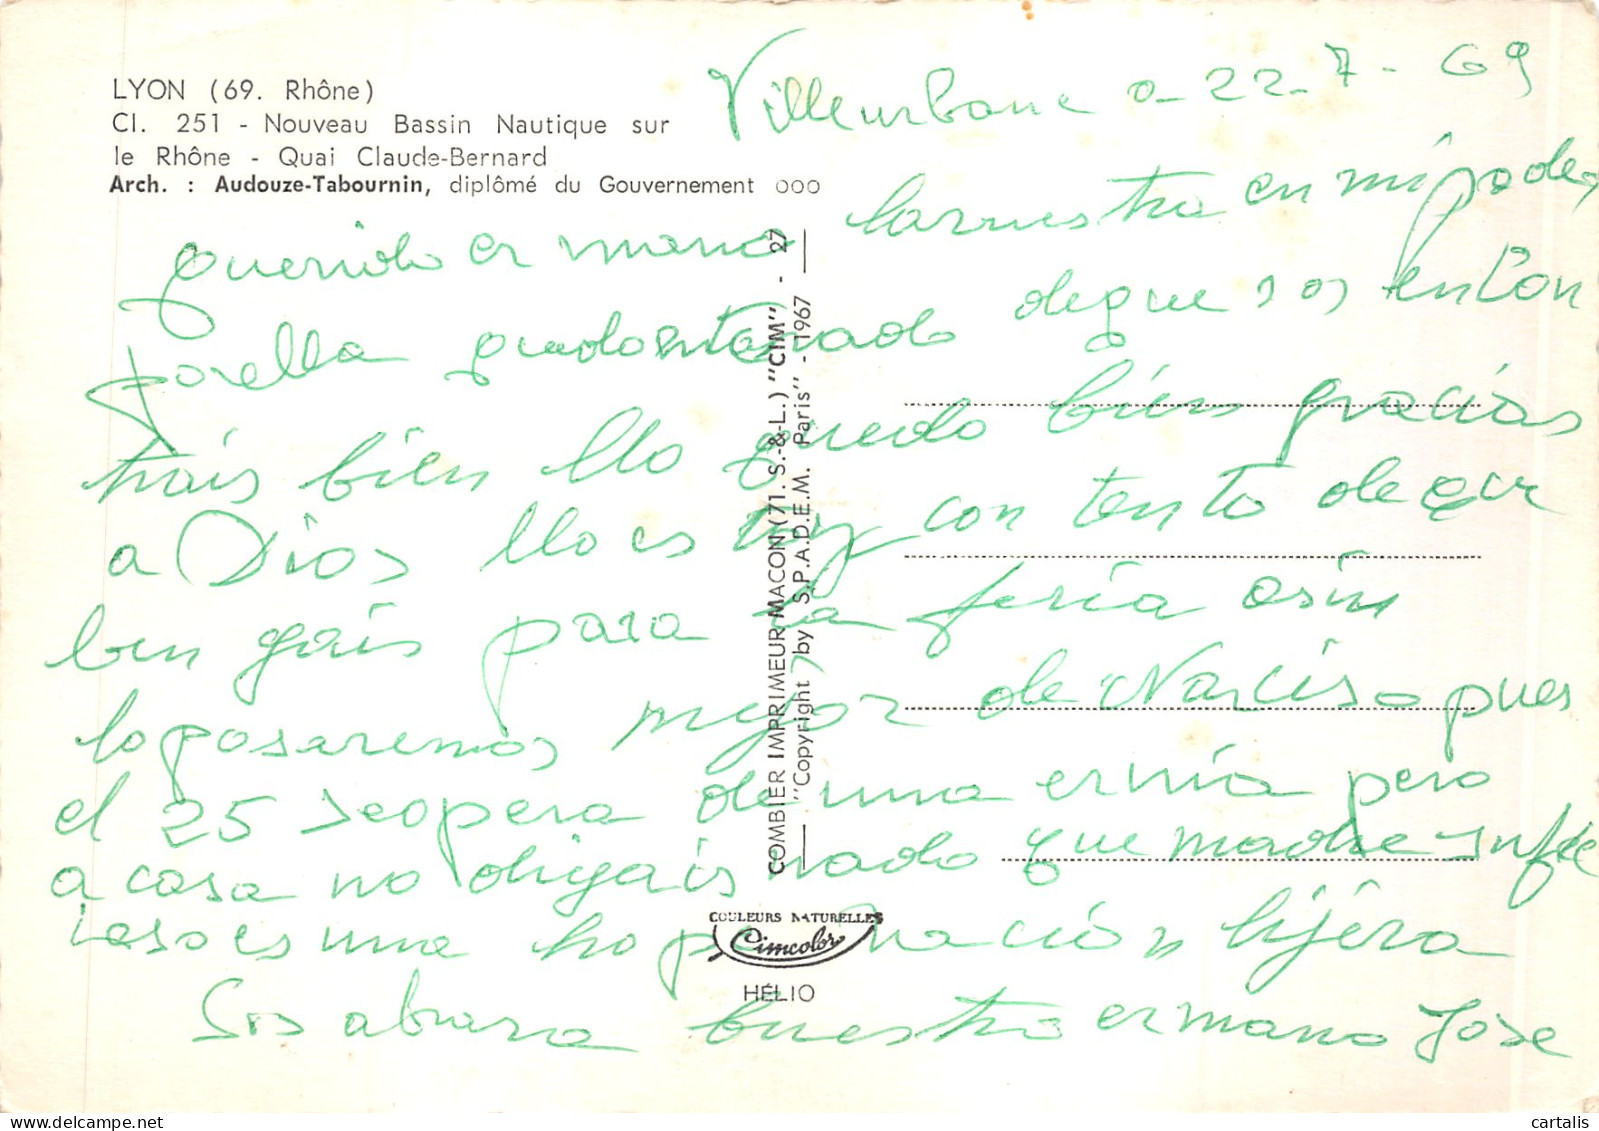 LYON (69. Rhône)
Cl. 251 - Nouveau Bassin Nautique sur
le Rhône - Quai Claude-Bernard
Arch. : Audouze-Tabournin, diplômé du Gouvernement ooo
Villeurbane a- 22-7-69
querido ermano la nuestra en mi poder
por ella quedo enterado de que sos encon
trais bien llo quedo bien gracias
a Dios llo estoy contento de que
ben gais para la feria asin
lo pasaremos mejor de Narciso pues
el 25 se opera de una ernia pero
a casa no digais nado que madre sufre
i eso es una hoperación lijera
Sos abraza buestro ermano Jose
COMBIER IMPRIMEUR MACON (71. S.-&-L.) "CIM" - 27
"Copyright by S.P.A.D.E.M. Paris" - 1967
COULEURS NATURELLES
Cimcolor
HÉLIO
cartalis